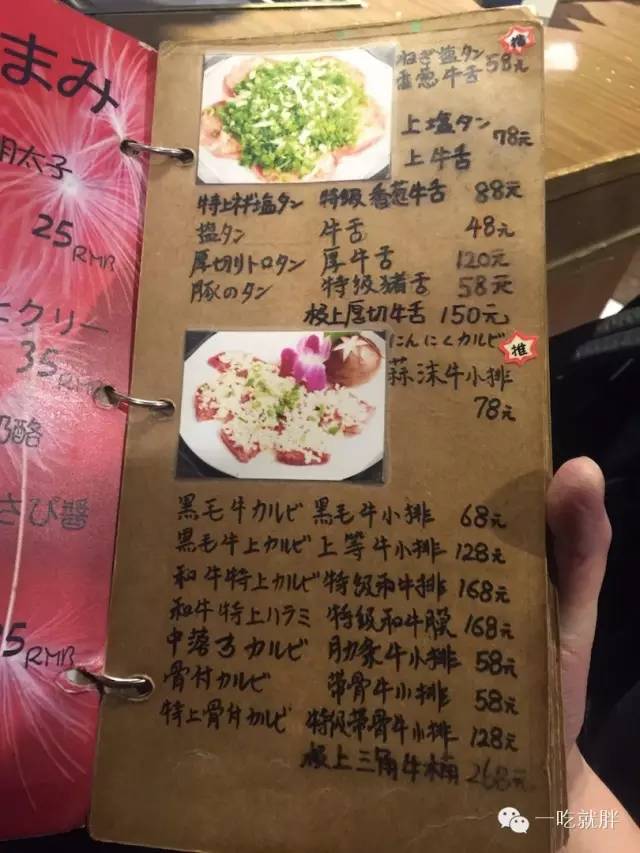 まみ
明太子
25 RMB
クリー
35 RMB
乃酪
さび醬
RMB
推
ねぎ塩タン
香葱牛舌 58元
上塩タン
上牛舌 78元
特上ネギ塩タン 特級香葱牛舌 88元
塩タン 牛舌 48元
厚切りトロタン 厚牛舌 120元
豚のタン 特級猪舌 58元
极上厚切牛舌 150元
にんにくカルビ 推
蒜沫牛小排
78元
黒毛牛カルビ 黒毛牛小排 68元
黒毛牛上カルビ 上等牛小排 128元
和牛特上カルビ 特级和牛排 168元
和牛特上ハラミ 特级和牛膜 168元
中落ちカルビ 肋条牛小排 58元
骨付カルビ 带骨牛小排 58元
特上骨付カルビ 特级带骨牛小排 128元
极上三角牛腩 268元
一吃就胖